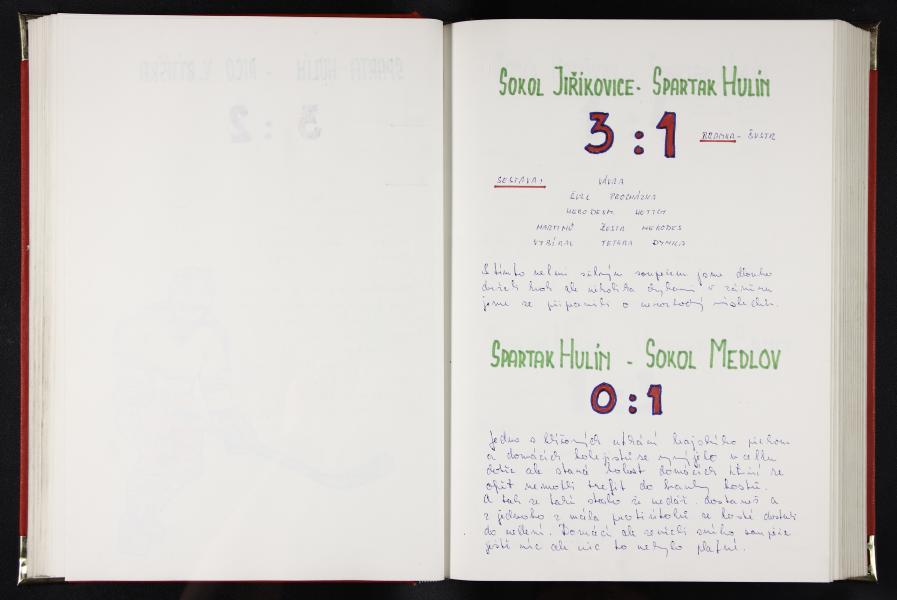 SOKOL JIŘÍKOVICE - SPARTAK HULÍN
3 : 1
BRANKA - ŽUSTR
SESTAVA: VÁVRA
PROCHÁZKA
MARTINŮ MERODES
VYBÍRAL TETERA DYMKA
S tímto velmi silným soupeřem jsme dlouho
drželi krok ale několika chybami v závěru
jsme se připravili o nerozhodný výsledek.
SPARTAK HULÍN - SOKOL MEDLOV
0 : 1
Jedno z klíčových utkání krajského
a domácích se vyvíjelo v celku
dobře ale stará bolest domácích se
opět nemohli trefit do branky hostů.
A tak se také stalo že nedáš dostaneš a
z jednoho z mála protiútoků se hosté dostali
do vedení. Domácí ale soupeře
ještě víc ale nic to nebylo platné.